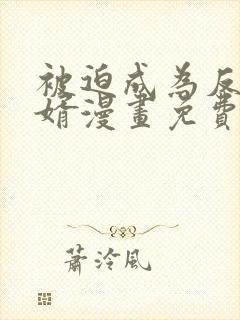 被迫成為反
婿漫畫免費
蕭泠風